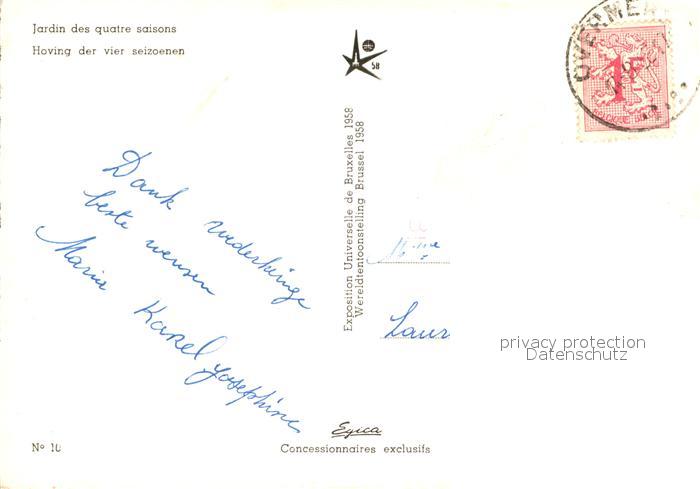 Jardin des quatre saisons
Hoving der vier seizoenen
58
OVERMERE
1F
BELGIQUE BELGIË
Dank wederkerige
beste wensen
Maria Karel Josephine
Exposition Universelle de Bruxelles 1958
Wereldtentoonstelling Brussel 1958
Laur
privacy protection
Datenschutz
Nº 10
Egica
Concessionnaires exclusifs